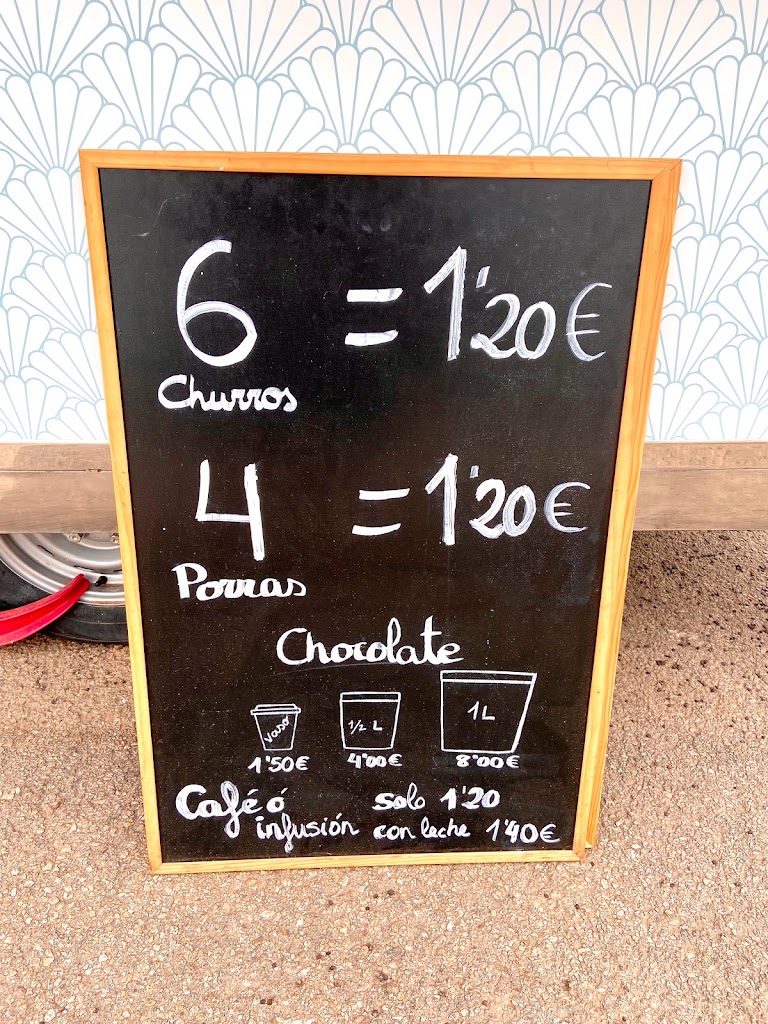 6 = 1'20€
Churros
4 = 1'20€
Porras
Chocolate
vaso 1/2 L 1L
1'50€ 4'00€ 8'00€
Café ó solo 1'20
infusión con leche 1'40€